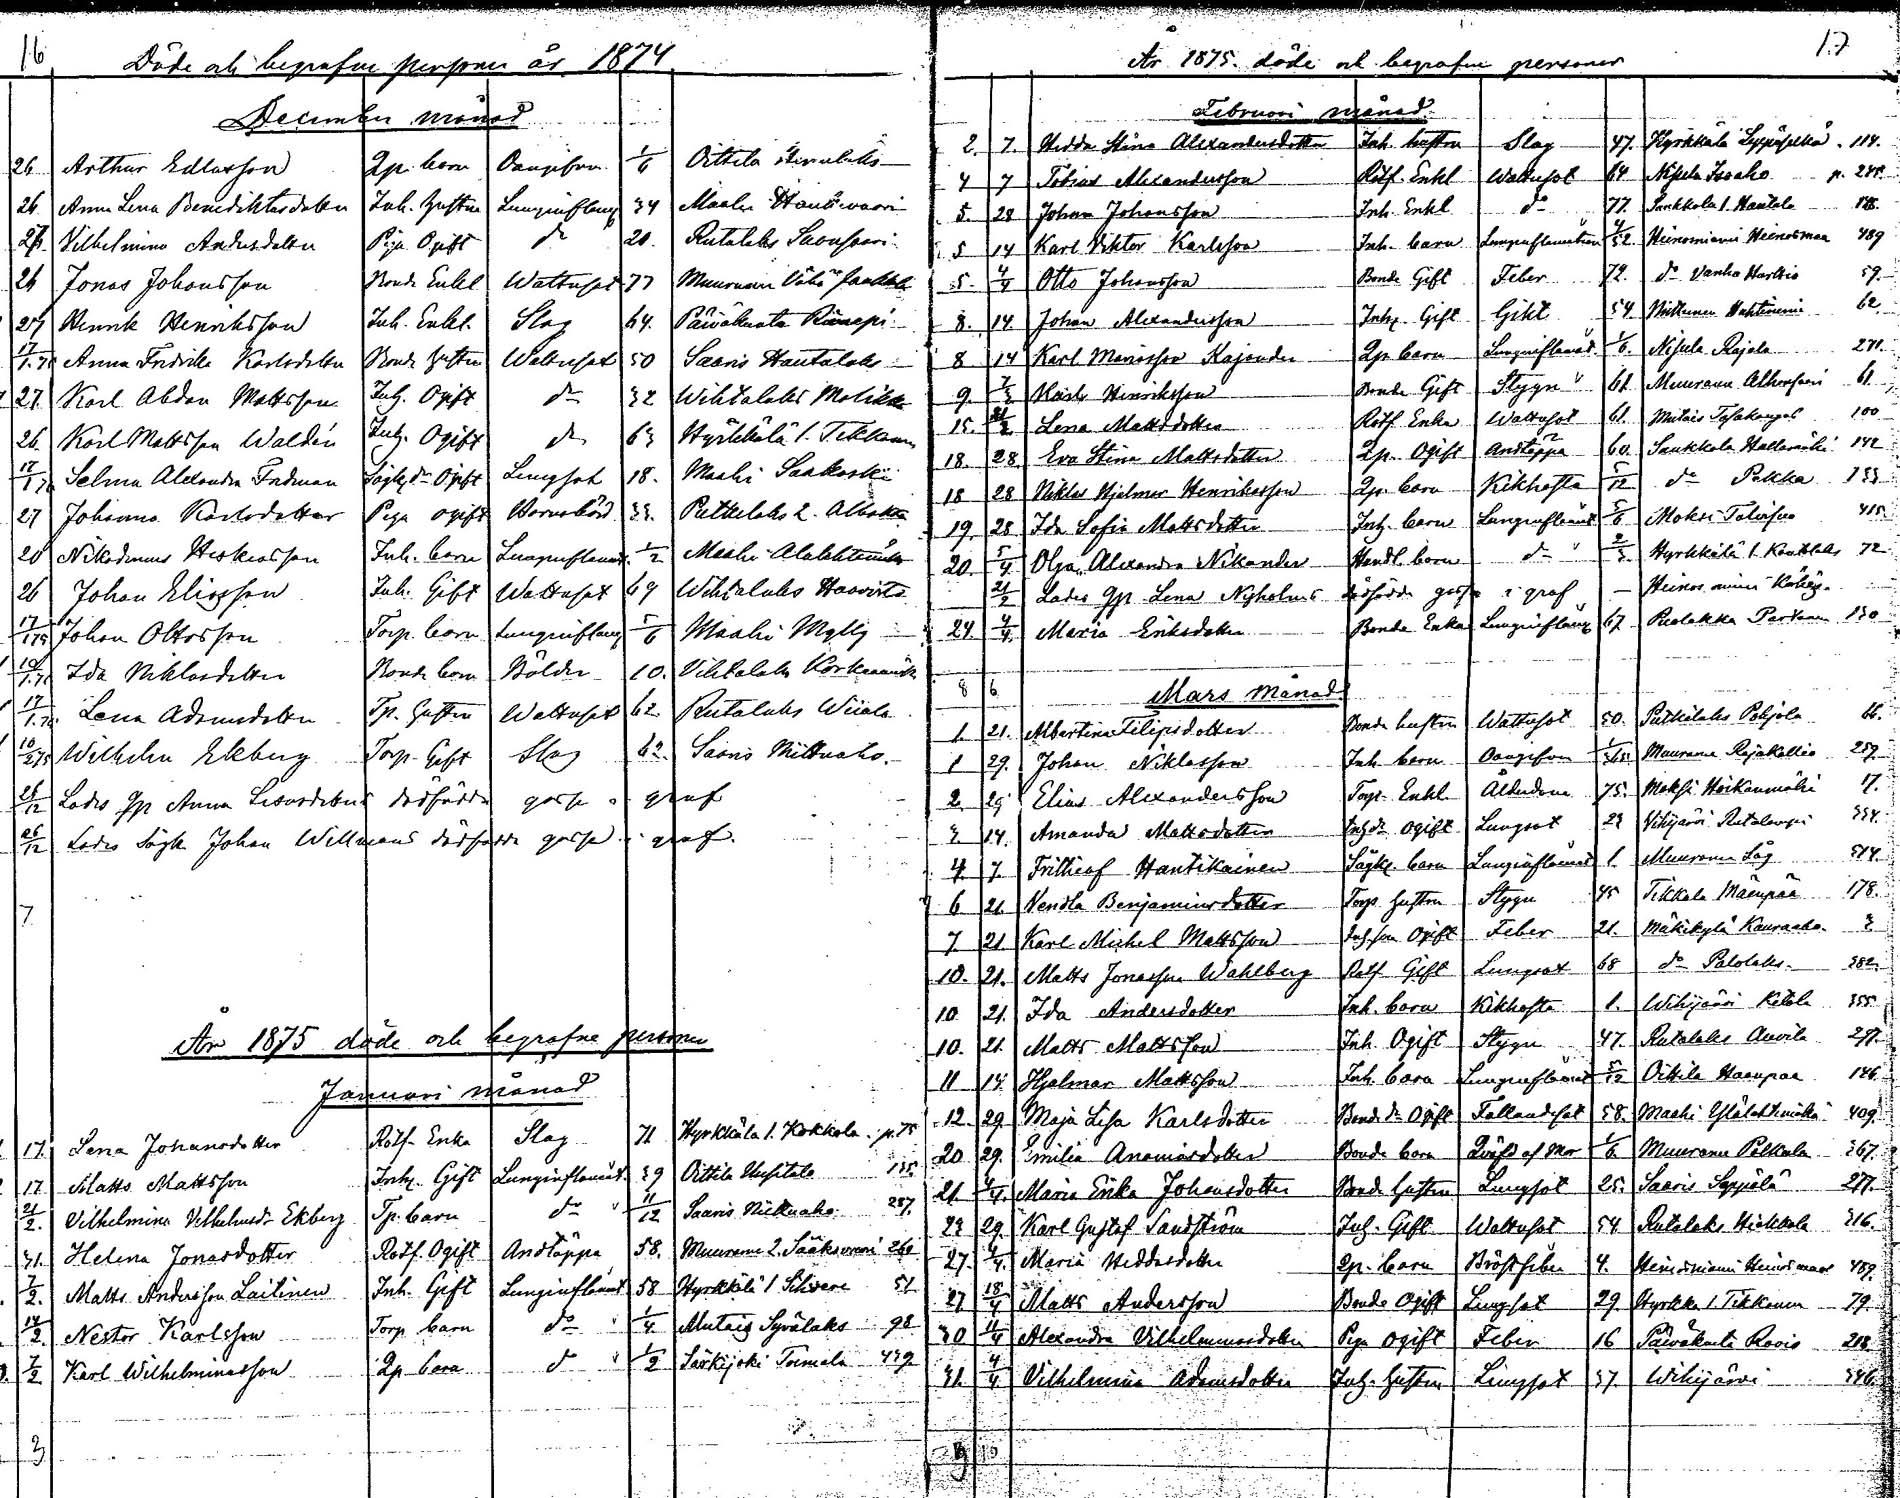 16
Döde och begrafne personer år 1874
December månad
26 Arthur Edlasson Qp. barn Oangifven 1/6 Oittila
26 Anna Lena Benediktsdotter Inh. Hustru Lunginflam 34 Maahi
Vilhelmina Andersdotter Piga Ogift do 20. Rutalaks
26 Jonas Johansson Bonde Enkl Wattusot 77 Muurame
27 Henrik Henriksson Inh. Enkl. Slag 64. Päiväkunta
17/1.75 Anna Fredrika Karlsdotter Bonde Hustru Wattusot 50 Saaris Hautalaks
27 Karl Abdon Mattsson Inh. Ogift do 32 Wihtalaks
26. Karl Mattsson Waldén Inh. Ogift do 63 Hyrkkälä 1. Tikkanen
17/1.75 Selma Alexandra Fridman Sågk. dr Ogift Lungsot 18. Maahi Saakoski
27 Johanna Karlsdotter Piga ogift Barnsbörd Putkilaks 2.
20 Nikodemus Inh. barn Lunginflamat. 1/2 Maahi
26 Johan Eliasson Inh. Gift Wattusot 69 Wihtalaks
17/1.75 Johan Ottosson Torp. barn Lunginflam 5/6 Maahi Mylly
Ida Niklasdotter Bonde barn Bölder 10. Vihtalaks
17/1.75 Lena Adamsdotter Tp. Hustru Wattusot 62 Rutalaks Wiiala
Wilhelm Ekberg Torp. Gift Slag 62. Saaris Mittuaho.
26/12 Lades Qp Anna dödfödde gosse i graf
26/12 Lades Sågk Johan Willmans dödfödde gosse i graf.
7
År 1875 döde och begrafne personer
Januari månad
17. Lena Johansdotter Rotf. Enka Slag 71 Hyrkkälä 1. Kokkola p. 75
17 Matts Mattsson Inh. Gift Lunginflamat. 39 Oittila Uusitalo 135
21/2. Vilhelmina Vilhelmsdr Ekberg Tp. barn do 11/12 Saaris Mittuaho 287.
31 Helena Jonasdotter Rotf. Ogift Andtäppa 58. Muurame 2. Sääksvuori 260
7/2. Matts Andersson Laitinen Inh. Gift Lunginflamat 58 Hyrkkälä 1 51
14/2. Nestor Karlsson Torp barn do 1/4 Mutais Syvälaks 98
7/2 Karl Wilhelminasson Qp barn do 1/2 Särkijoki Toimela 439
3
17
År 1875. döde och begrafne personer
Februari månad.
2. 7. Hedda Stina Alexandersdotter Inh. hustru Slag 47. Hyrkkälä 114.
4 7 Tobias Alexandersson Rotf. Enkl Wattusot 64 Nisula Isoaho p. 245.
5. 28 Johan Johansson Inh. Enkl do 77. Sankkola 1. Hautala
5 14 Karl Viktor Karlsson Inh. barn Lunginflamation 4/52 Heinosniemi Heinosmaa 489
5. 4/4 Otto Johansson Bonde Gift Feber 72. do Vanha Harkio 59
8. 14 Johan Alexandersson Inh. Gift Gikt 54 62
8 14 Karl Mariasson Kajander Qp barn Lunginflamat 1/6. Nisula Rajala 271.
9. 7/3 Karl Henriksson Bonde Gift Stygn 61 Muurame 61.
15. 21/2 Lena Mattsdotter Rotf Enka Wattusot 61. Mutais 100
18. 28 Eva Stina Mattsdotter Qp. Ogift Andtäppa 60. Sankkola 142
18 28 Niklas Hjalmar Henriksson Qp. barn Kikhosta 5/12 do Pekka 133
19. 28 Ida Sofia Mattsdotter Inh. barn Lunginflamat 5/6 Moksi Talvisuo 415
20. 5/4 Olga Alexandra Nikander Handl. barn do 2/3 Hyrkkälä 1. 72
21/2 Lades Qp Lena Nyholms dödfödde gosse i graf — Heinosniemi
24 4/4. Maria Eriksdotter Bonde Enka Lunginflam 67. Ruolakka Partanen 130
8 6
Mars månad
1. 21. Albertina Filipsdotter Bonde hustru Wattusot 50. Putkilaks Pohjola 66.
1 29. Johan Niklasson Inh. barn Oangifven Muurame Rajakallio 259
2. 29 Elias Alexandersson Torp. Enkl Ålderdom 75. Moksi Heikanmäki 17.
3. 14. Amanda Mattsdotter Inh. dr ogift Lungsot 23 Vihijärvi 334.
4. 7. Frithiof Hantikainen Sågk. barn Lunginflamat 1. Muurame Såg 514.
6 21 Vendla Benjaminsdotter Torp. hustru Stygn 45 Tikkala Mäenpää 178.
7. 21 Karl Michel Mattsson Inh. son Ogift Feber 21. Mäkikylä Kauraaho. 2
10. 21. Matts Jonasson Wahlberg Rotf Gift Lungsot 68 do Palolaks. 382.
10 21. Ida Andersdotter Inh. barn Kikhosta 1. Wihijärvi Ketola 355
10. 21. Matts Mattsson Inh. Ogift Stygn 47. Rutalaks Auvila 297.
11 14. Hjalmar Mattsson Inh. barn Lunginflamat 5/12 Oittila Haanpaa 146.
12. 29. Maja Lisa Karlsdotter Bonde dr Ogift Fallandesot 58. Maahi 409.
20 29. Emilia Ananiasdotter Bonde barn Qväfd af Mor 1/6 Muurame Pelkola 267.
21. 4/4. Maria Erika Johansdotter Bonde hustru Lungsot 25. Saaris Seppälä 277.
23 29. Karl Gustaf Sandström Inh. Gift Wattusot 54 Rutalaks Hiekkala 316.
27. 4/4. Maria Heddasdotter Qp. barn Bröstfeber 4. Heinosniemi Heinosmaa 489.
27 18/4 Matts Andersson Bonde Ogift Lungsot 29 Hyrkk. 1. Tikkanen 79.
30 11/4 Alexandra Vilhelminasdotter Piga ogift Feber 16 Päiväkunta Ravio 218
31. 4/4 Vilhelmina Adamsdotter Inh. hustru Lungsot 37. Wihijärvi 346.